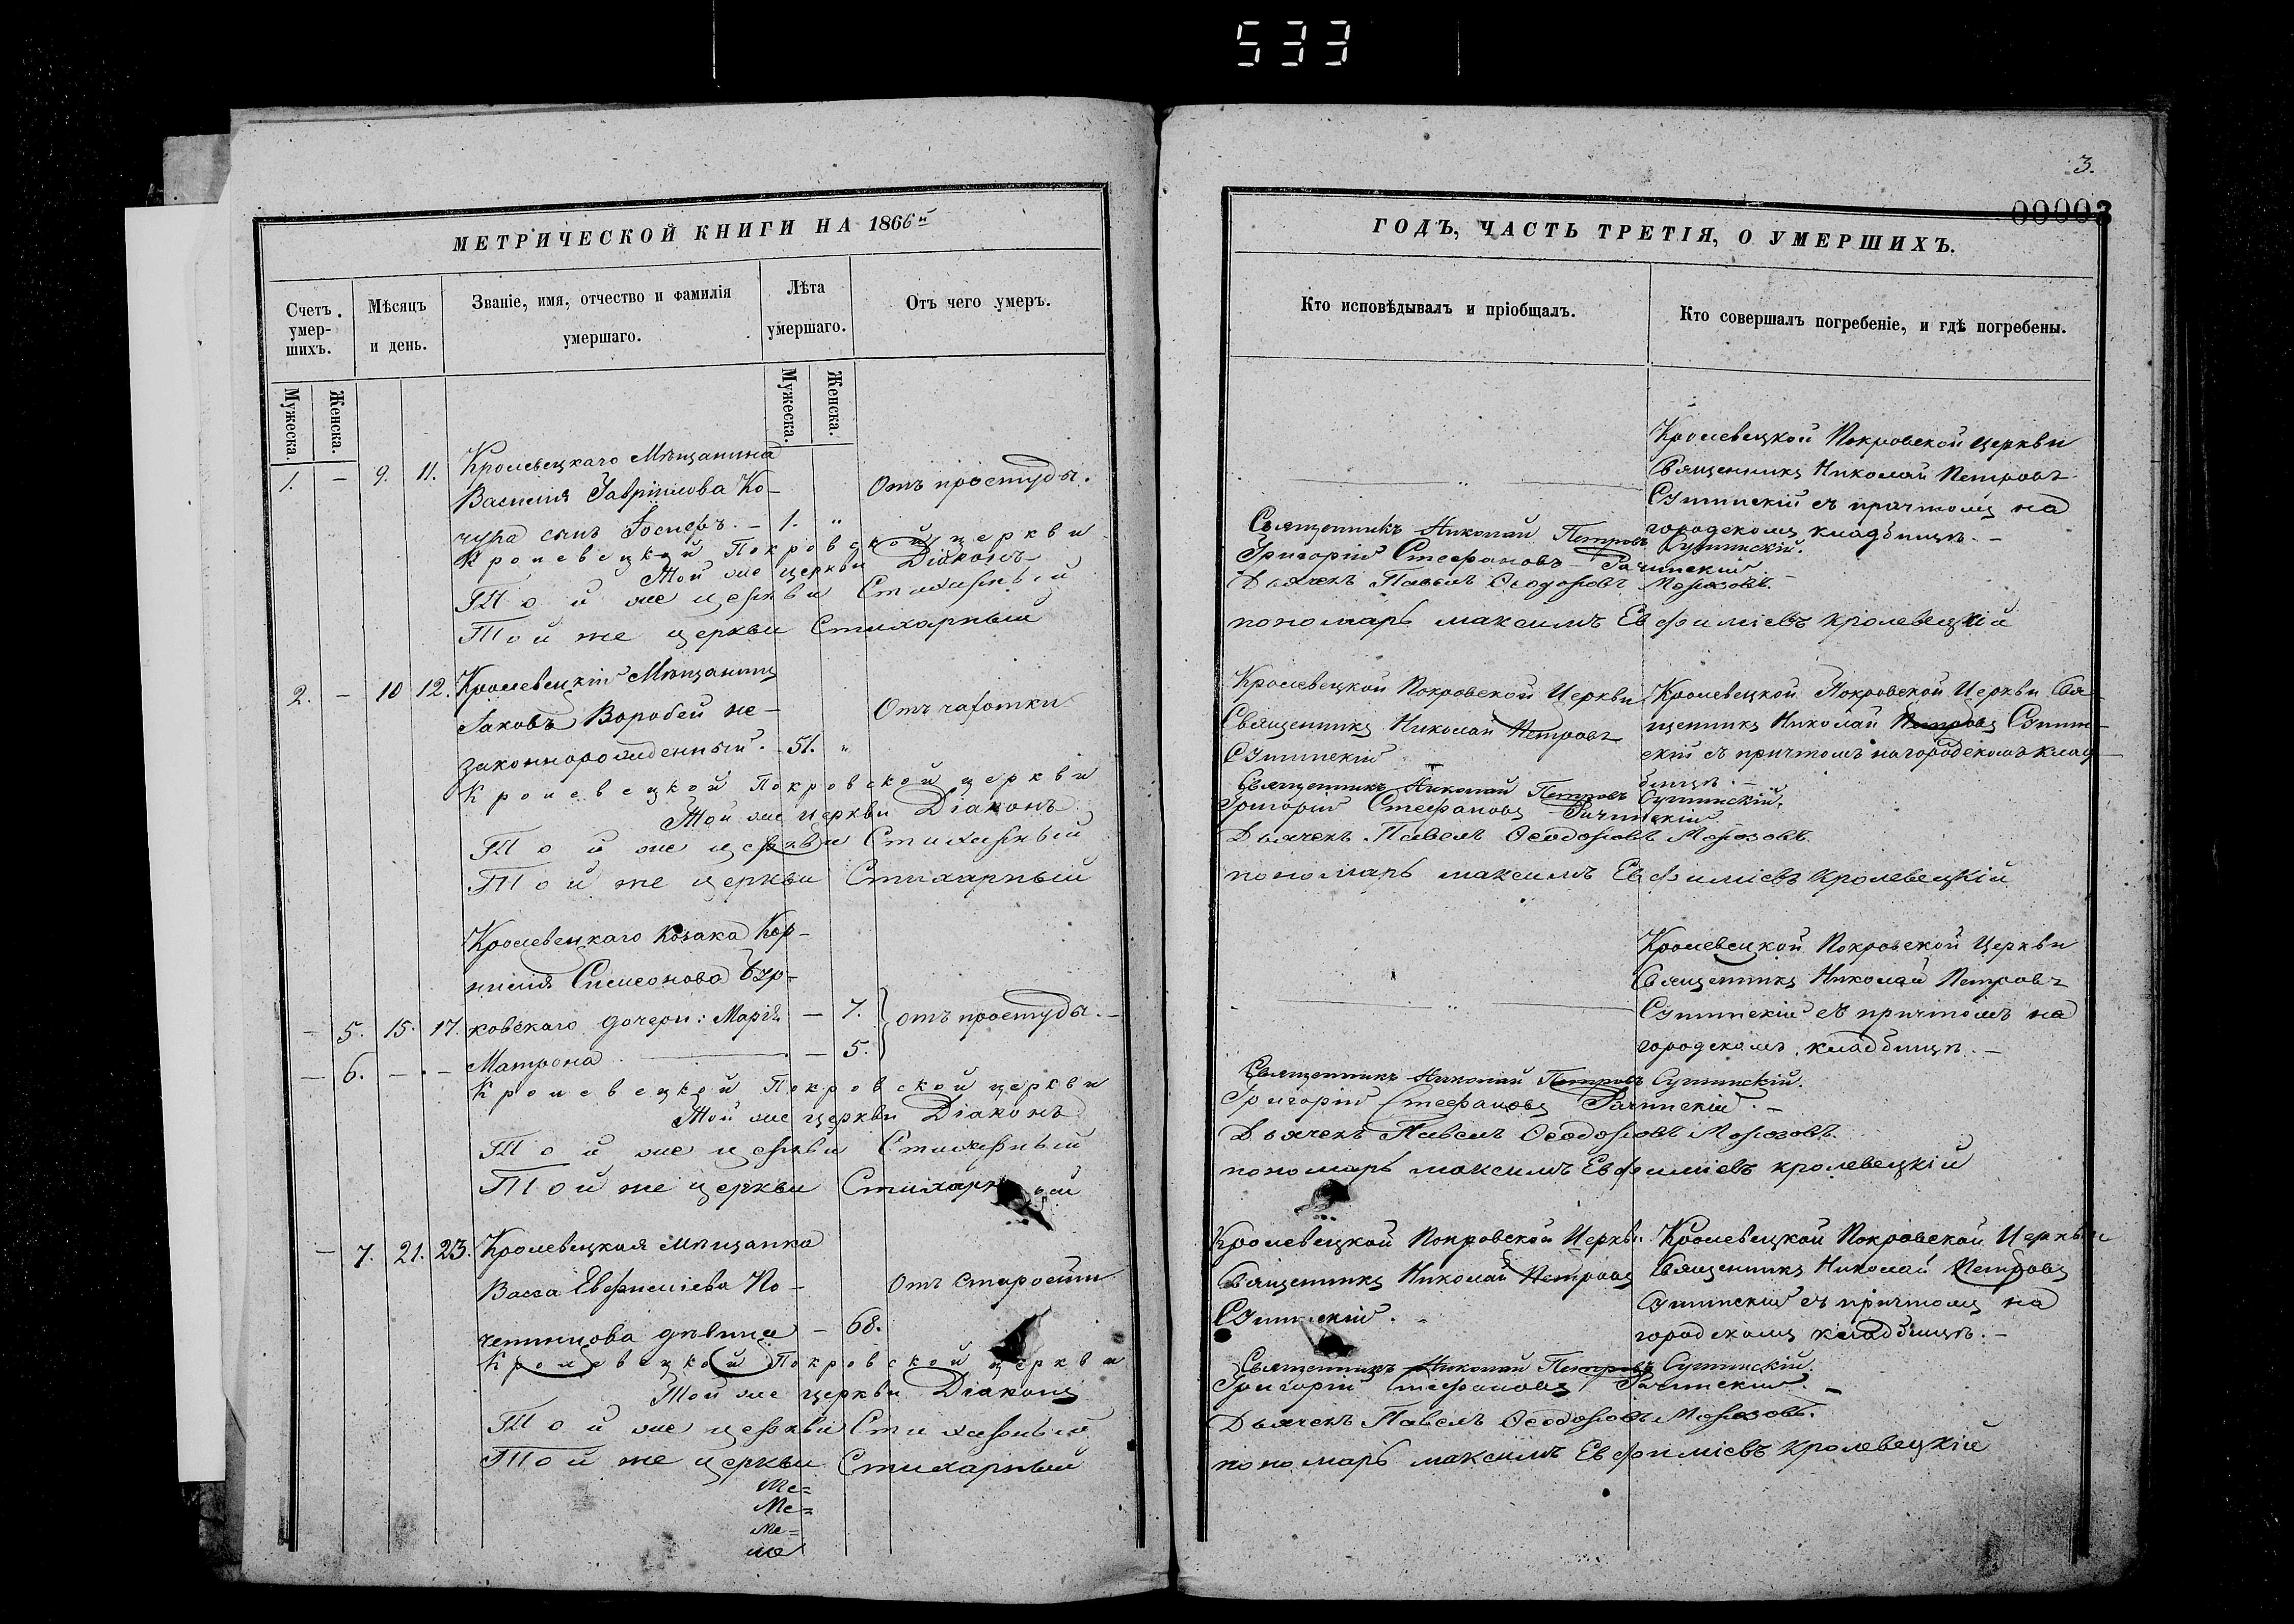 533
МЕТРИЧЕСКОЙ КНИГИ НА 1866й
Счетъ умер-
шихъ.
Мѣсяцъ
и день.
Званіе, имя, отчество и фамилія
умершаго.
Лѣта
умершаго.
Отъ чего умеръ.
Мужеска.
Женска.
Мужеска.
Женска.
1. – 9. 11. Кролевецкаго Мѣщанина
Василія Гавріилова Ко- Отъ простуды.
чура сынъ Іосифъ. – 1. "
Кролевецкой Покровской церкви
Той же церкви Діаконъ
Той же церкви Стихарный
Той же церкви Стихарный
2. – 10 12. Кролевецкій Мѣщанинъ
Іаковъ Воробей не- Отъ чахотки
законнорожденный. – 51. "
Кролевецкой Покровской церкви
Той же церкви Діаконъ
Той же церкви Стихарный
Той же церкви Стихарный
Кролевецкаго Козака Кор-
нилія Симеонова Бур-
– 5. 15. 17. ковскаго дочери: Марія – 7. отъ простуды. –
– 6. – . – Матрона – 5.
Кролевецкой Покровской церкви
Той же церкви Діаконъ
Той же церкви Стихарный
Той же церкви Стихарный
– 7. 21. 23. Кролевецкая мѣщанка
Васса Евфиміева По- отъ старости
девица – 68.
Кролевецкой Покровской церкви
Той же церкви Діаконъ
Той же церкви Стихарный
Той же церкви Стихарный
Ме=
Ме=
ме=
ме
3.
00003
ГОДЪ, ЧАСТЬ ТРЕТІЯ, О УМЕРШИХЪ.
Кто исповѣдывалъ и пріобщалъ.
Кто совершалъ погребеніе, и гдѣ погребены.
Кролевецкой Покровской церкви
Священникъ Николай Петровъ
Сушинскій съ причтомъ на
городскомъ кладбищѣ. –
Священникъ Николай Петровъ Сушинскій.
Григорій Стефановъ Рачинскій
Дьячекъ Павелъ Ѳеодоровъ Морозовъ.
пономарь максимъ Евфиміевъ кролевецкій
Кролевецкой Покровской Церкви
Священникъ Николай Петровъ
Сушинскій
Кролевецкой Покровской Церкви Свя-
щенникъ Николай Петровъ Сушин-
скій съ причтомъ на городскомъ клад-
бищѣ. –
Священникъ Николай Петровъ Сушинскій.
Григорій Стефановъ Рачинскій
Дьячекъ Павелъ Ѳеодоровъ Морозовъ.
пономарь максимъ Евфиміевъ кролевецкій
Кролевецкой Покровской Церкви
Священникъ Николай Петровъ
Сушинскій съ причтомъ на
городскомъ кладбищѣ. –
Священникъ Николай Петровъ Сушинскій.
Григорій Стефановъ Рачинскій. –
Дьячекъ Павелъ Ѳеодоровъ Морозовъ.
пономарь максимъ Евфиміевъ кролевецкій
Кролевецкой Покровской Церкви
Священникъ Николай Петровъ
Сушинскій.
Кролевецкой Покровской Церкви
Священникъ Николай Петровъ
Сушинскій съ причтомъ на
городскомъ кладбищѣ. –
Священникъ Николай Петровъ Сушинскій.
Григорій Стефановъ Рачинскій. –
Дьячекъ Павелъ Ѳеодоровъ Морозовъ.
пономарь максимъ Евфиміевъ кролевецкій